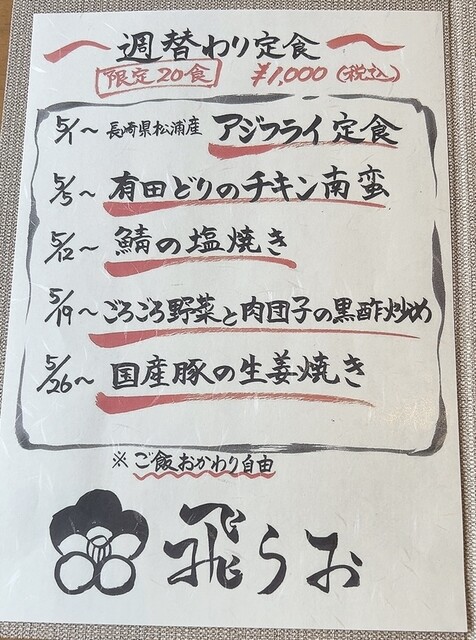 週替わり定食
限定20食 ¥1,000(税込)
5/1～ 長崎県松浦産 アジフライ定食
5/5～ 有田どりのチキン南蛮
5/12～ 鯖の塩焼き
5/19～ ごろごろ野菜と肉団子の黒酢炒め
5/26～ 国産豚の生姜焼き
※ご飯おかわり自由
飛うお